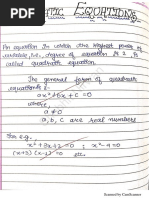 ATIC EQUATIONS
An equation in which the highest power of
variable, i.e., degree of equation is 2, is
called quadratic equation.
The general form of quadratic
equation is
ax² + bx + c = 0
where,
a ≠ 0
a, b, c are real numbers
For e.g.
x² + 3x + 2 = 0 ; x² - 9 = 0
(x+3) (x-2) = 0 etc.
Scanned by CamScanner